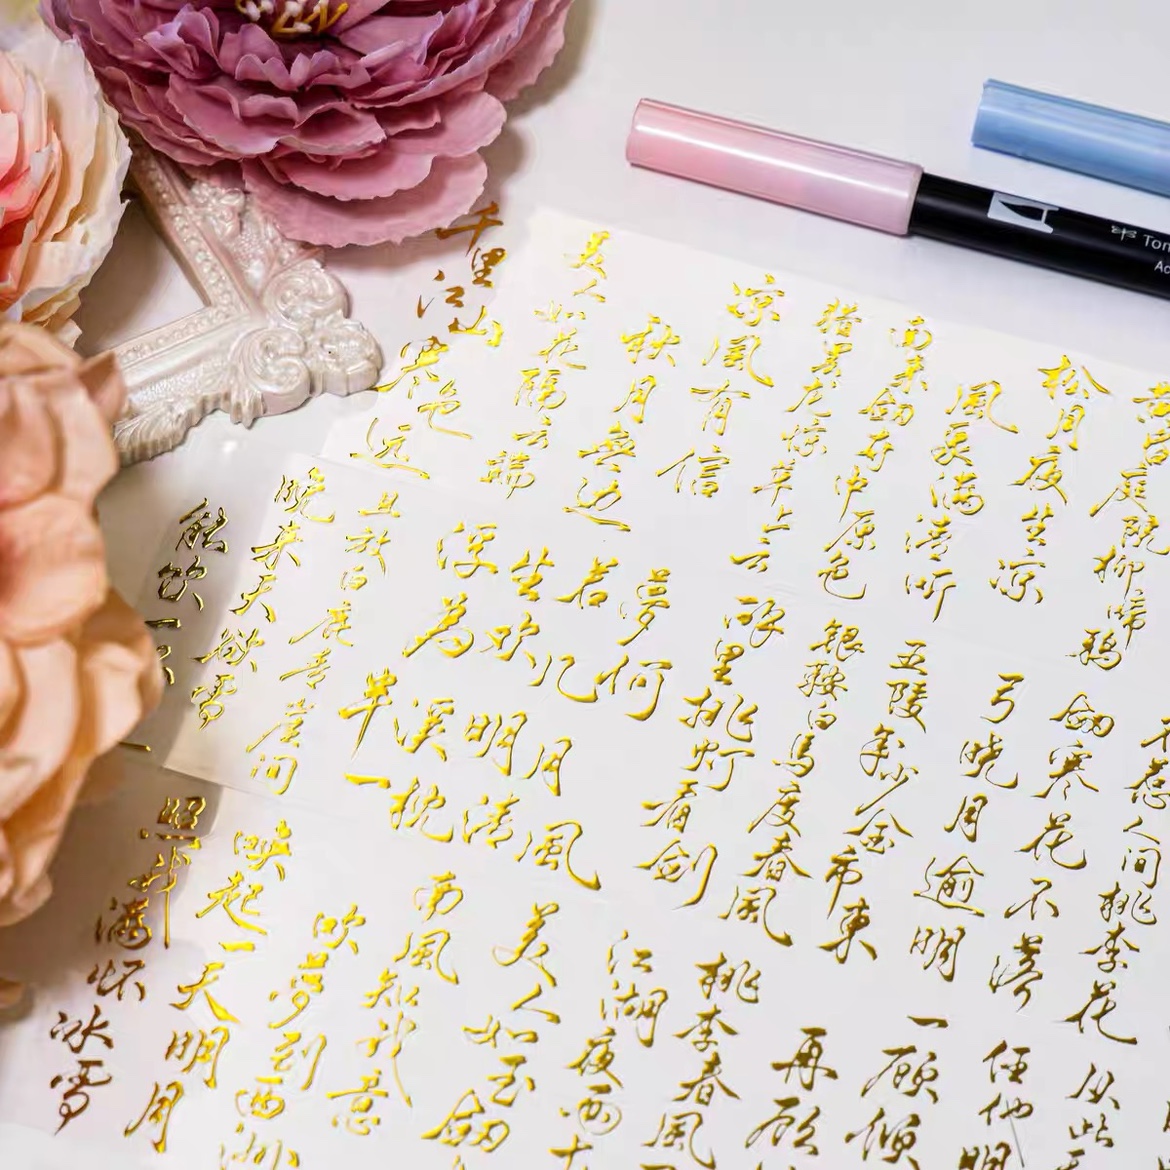 黄昏庭院柳啼鸦
松月夜生凉
風泉满清听
南来剑
中原色
尤惊草上云
凉風有信
秋月無边
美人如花隔云端
千里江山寒色远
不惹人间桃李花
剑寒花不落
弓晓月逾明
五陵年少金市東
银鞍白馬度春風
醉里挑灯看剑
浮生若夢
為欢几何
半溪明月
一枕清風
且放白鹿青崖间
晚来天欲雪
能饮一
从此
任他明
一願傾
再願
桃李春風
江湖夜雨十
美人如玉剑
南風知我意
吹夢到西洲
唤起一天明月
照我满怀冰雪
Tom